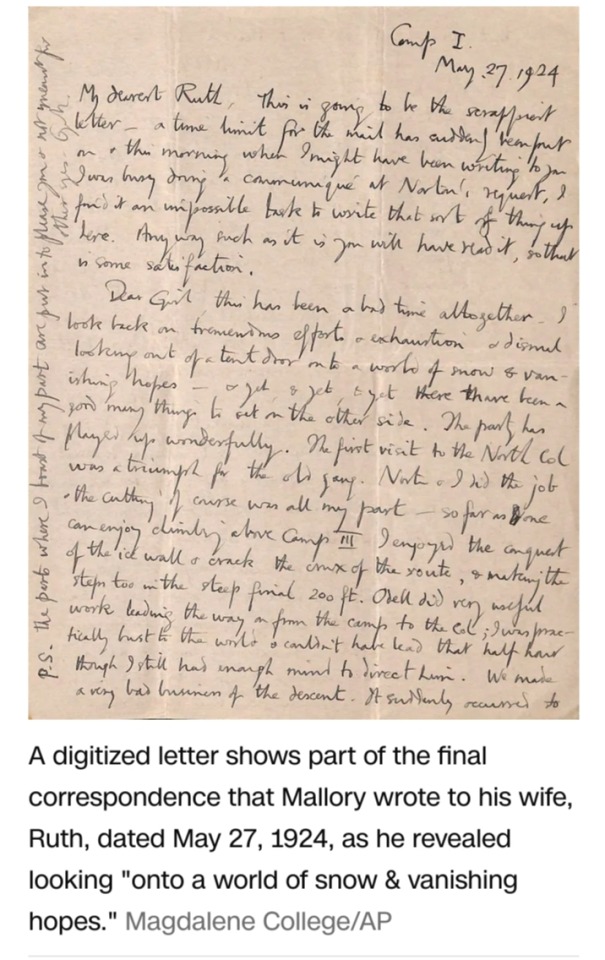 Camp I.
May. 27. 1924
My dearest Ruth, This is going to be the scrappiest
letter — a time limit for the mail has suddenly been put
on & this morning when I might have been writing to you
I was busy doing a communiqué at Norton's request, I
find it an impossible task to write that sort of thing up
here. Anyway such as it is you will have read it, so that
is some satisfaction.
Dear Girl this has been a bad time altogether. I
look back on tremendous efforts & exhaustion & dismal
looking out of a tent door onto a world of snow & van-
ishing hopes — & yet, & yet, & yet there have been a
good many things to set on the other side. The party has
played up wonderfully. The first visit to the North Col
was a triumph for the old gang. Nort. & I did the job
& the cutting of course was all my part — so far as one
can enjoy climbing above Camp III I enjoyed the conquest
of the ice wall & crack the crux of the route, & making the
steps too in the steep final 200 ft. Odell did very useful
work leading the way on from the camp to the Col; I was prac-
tically bust to the world & couldn't have lead that half hour
though I still had enough mind to direct him. We made
a very bad business of the descent. It suddenly occurred to
P.S. the parts where I boast of my part are put in to please you & not meant for
other eyes. G.M.
A digitized letter shows part of the final
correspondence that Mallory wrote to his wife,
Ruth, dated May 27, 1924, as he revealed
looking "onto a world of snow & vanishing
hopes." Magdalene College/AP